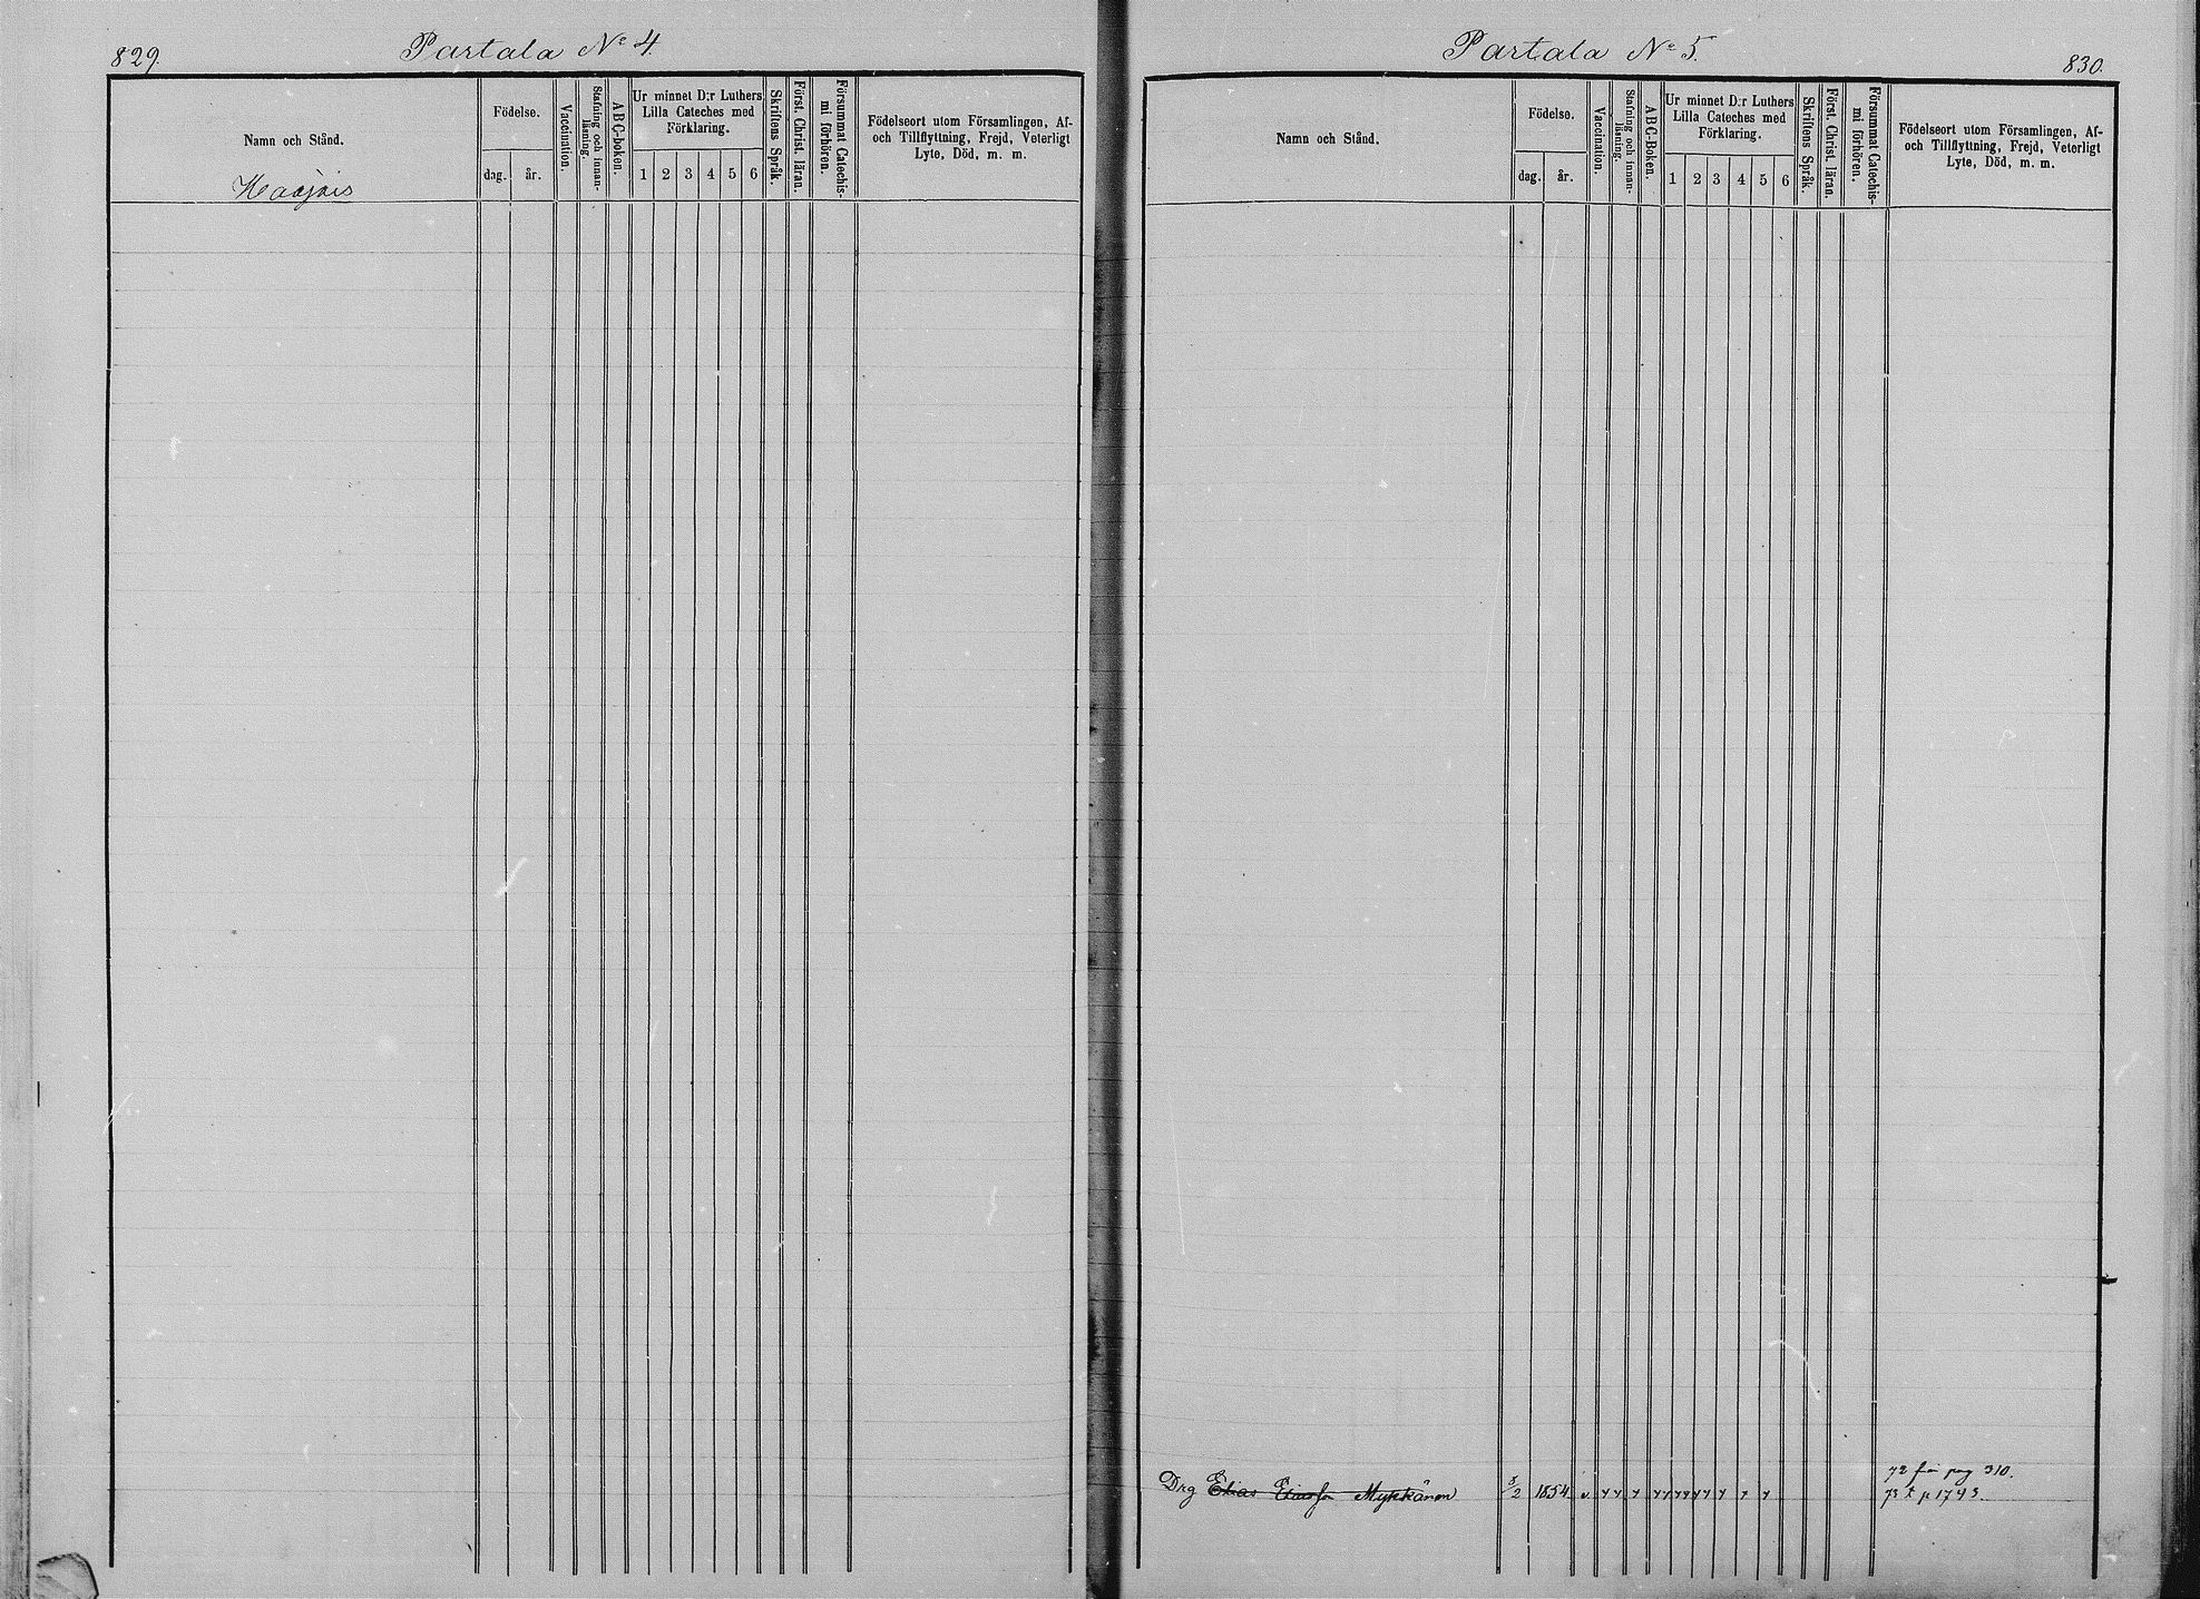 829.
Partala No 4.
Namn och Stånd.
Födelse.
dag.
år.
Vaccination.
Stafning och innan-
läsning.
ABC-boken.
Ur minnet D:r Luthers
Lilla Cateches med
Förklaring.
1 2 3 4 5 6
Skriftens Språk.
Först. Christ. läran.
Försummat Catechis-
mi förhören.
Födelseort utom Församlingen, Af-
och Tillflyttning, Frejd, Veterligt
Lyte, Död, m. m.
Partala No 5.
830.
Namn och Stånd.
Födelse.
dag.
år.
Vaccination.
Stafning och innan-
läsning.
ABC-Boken.
Ur minnet D:r Luthers
Lilla Cateches med
Förklaring.
1 2 3 4 5 6
Skriftens Språk.
Först. Christ. läran.
Försummat Catechis-
mi förhören.
Födelseort utom Församlingen, Af-
och Tillflyttning, Frejd, Veterligt
Lyte, Död, m. m.
72 fr pag 310.
Drg Elias Eliasson Mykkänen 5/2 1854 v.
73 t p 1743.